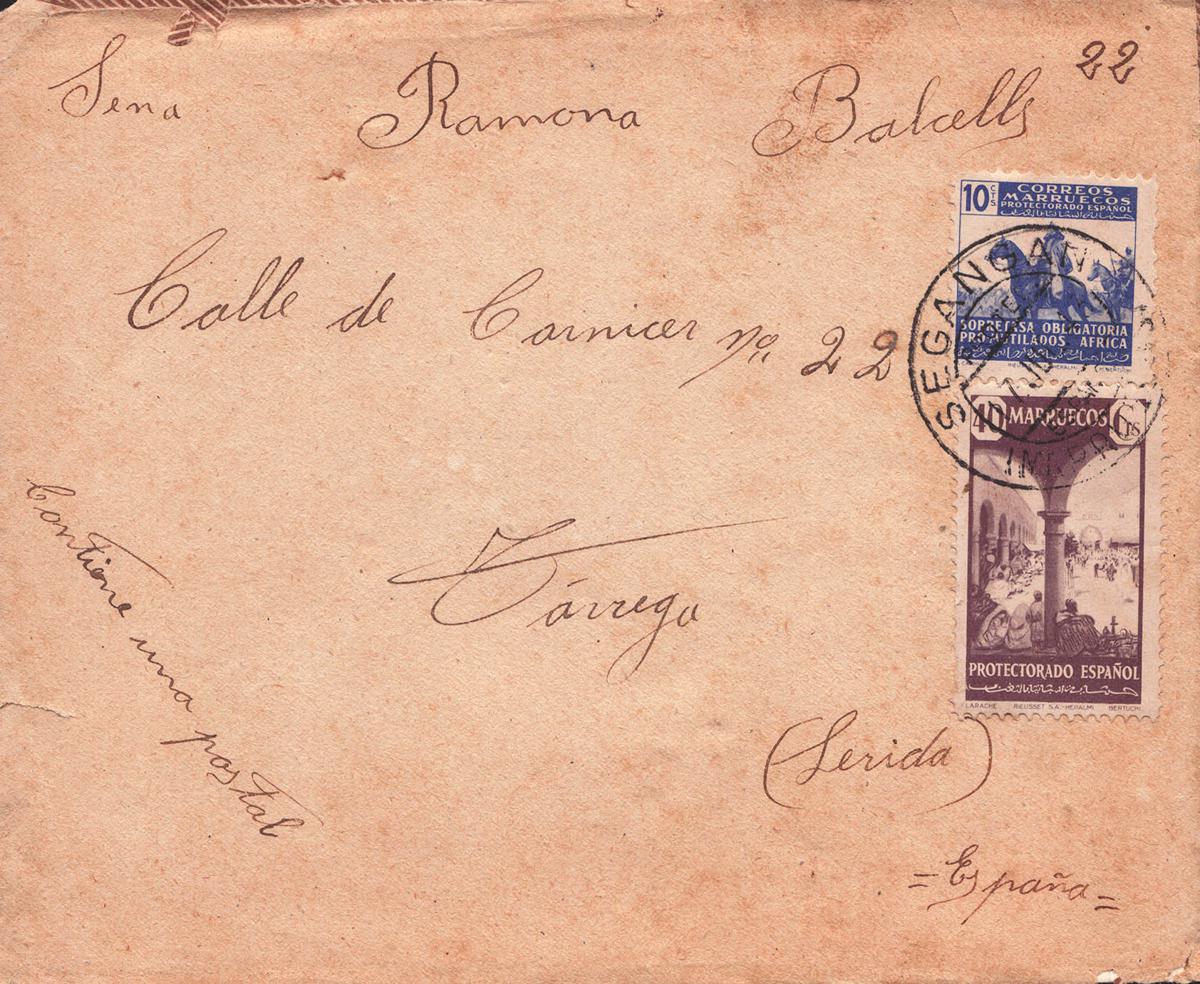 22
Sena Ramona Balcells
Calle de Carnicer nº 22
Tárrega
(Lerida)
=España=
Contiene una postal
10 CTS
CORREOS
MARRUECOS
PROTECTORADO ESPAÑOL
SOBRETASA OBLIGATORIA
PRO-MUTILADOS AFRICA
SEGANGAN
40 MARRUECOS Cts
PROTECTORADO ESPAÑOL
LARACHE RIEUSSET S.A.-HERALMI BERTUCHI